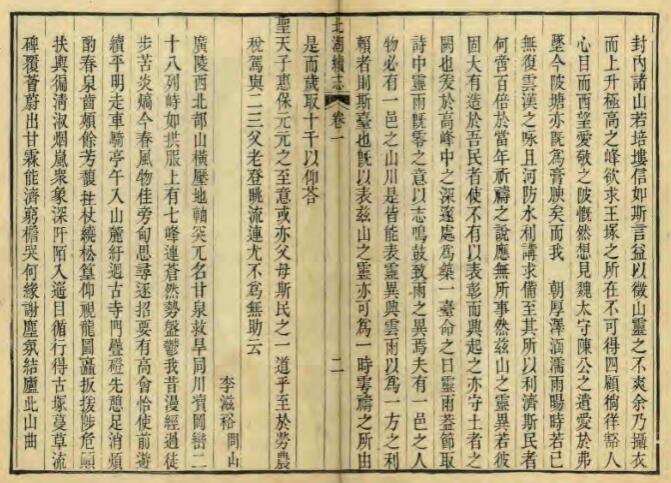 封內諸山若培塿信如斯言益以徵山靈之不爽余乃攝衣
而上升極高之峰欲求王塚之所在不可得四顧徜徉豁人
心目而西望愛敬之陂慨然想見魏太守陳公之遺愛於弗
墜今陂塘亦旣爲膏腴矣而我　朝厚澤涵濡雨暘時若已
無復雲漢之咏且河防水利講求備至其所以利濟斯民者
何啻百倍於當年祈禱之說應無所事然兹山之靈異若彼
固大有造於吾民者使不有以表彰而興起之亦守土者之
闕也爰於高峰中之深逐處爲築一臺命之曰靈雨葢節取
詩中靈雨旣零之意以志鳴鼓致雨之異焉夫有一邑之人
物必有一邑之山川是皆能表靈異興雲雨以爲一方之利
賴者則斯臺也旣以表兹山之靈亦可爲一時雩禱之所由
是而歲取十千以仰荅
北湖續志　卷一　二
聖天子惠保元元之至意或亦父母斯民之一道乎至於勞農
稅駕與二三父老登眺流連尤不爲無助云
李滋裕問山
廣陵西北鄙山橫壓地軸突兀名甘泉救旱同川瀆岡巒二
十八列峙如拱服上有七峰連蒼然勢盤鬱我昔漫經過徒
步苦炎熇今春風物佳旁甸思尋逐招要有高會恰使前遊
續平明走車騎亭午入山麓紆迴古寺門疊磴先憩足消煩
酌春泉齒頰餘芳馥拄杖繞松篁仰視龍圖矗扳援陟危巓
扶輿徧淸淑烟嵐衆象深阡陌入遙目循行得古塚蔓草流
碑覆薈蔚出甘霖能濟窮檐哭何緣謝塵氛結廬此山曲